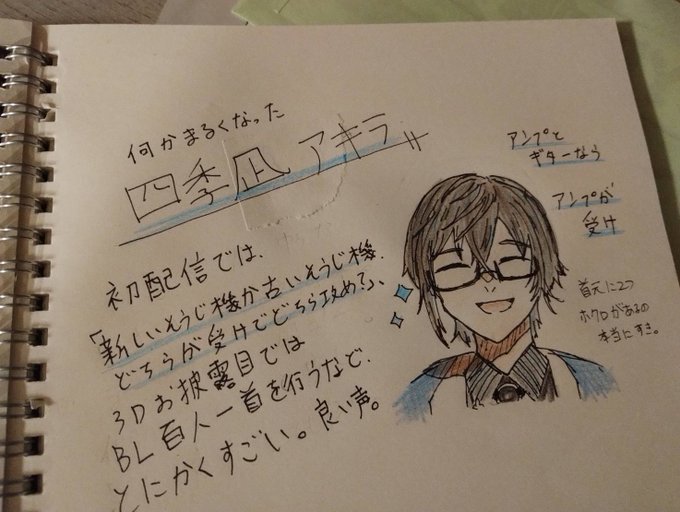 何かまるくなった
四季凪 アキラ
初配信では、
「新しいそうじ機か古いそうじ機、
どちらが受けでどちら攻め?」、
3Dお披露目では
BL百人一首を行うなど、
とにかくすごい。良い声。
アンプと
ギターなら
アンプが
受け
首元に2つ
ホクロがあるの
本当にすき。